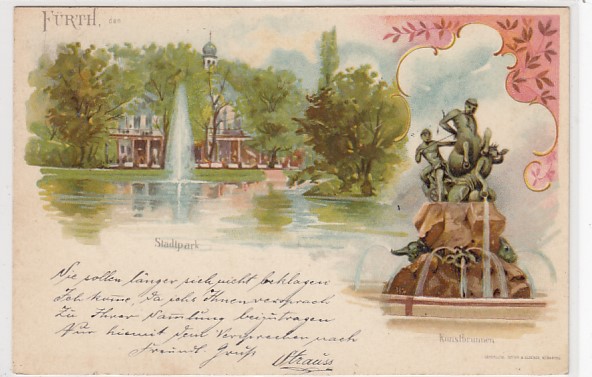 FÜRTH, den
Stadtpark
Kunstbrunnen
Nie sollen länger sich nicht beklagen
Ich komme, da ichs Ihnen versprach
Zu Ihrer Samlung beizutragen
Für hiermit dem Versprechen nach
Freundl. Gruß
Strauss